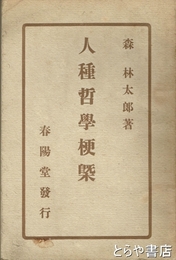 森 林太郎著
人種哲學梗槩
春陽堂發行
とらや書店